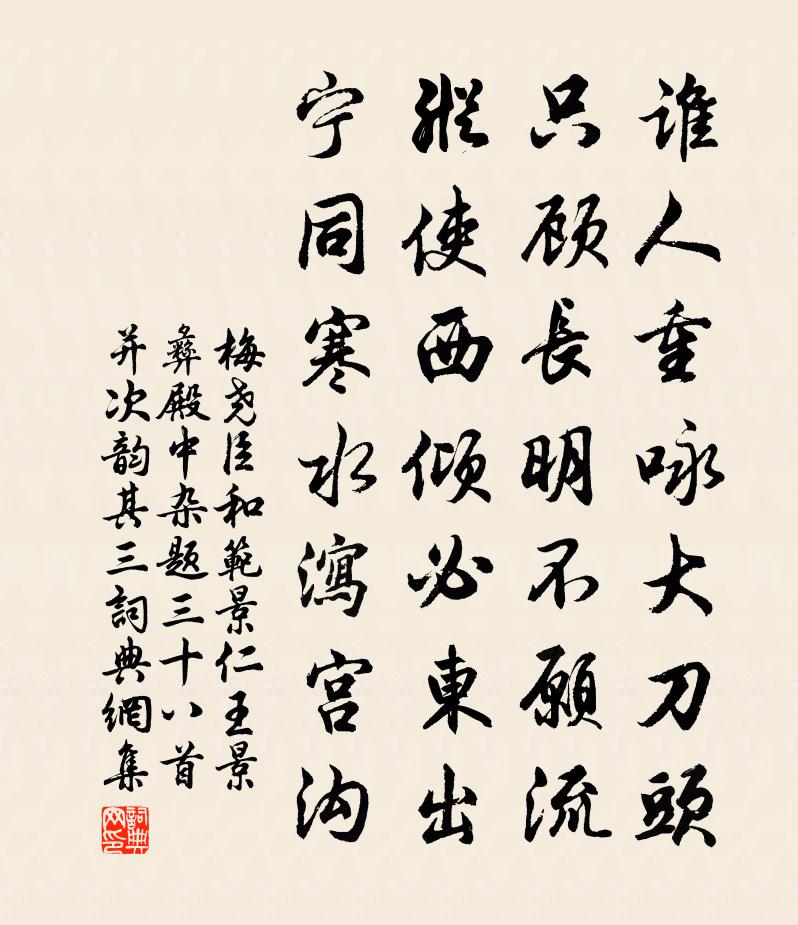 谁人重咏大刀頭
只顾長明不願流
縱使西倾必東出
宁同寒水瀉宫沟
梅尧臣和範景仁王景
彝殿中杂题三十八首
并次韵其三詞典網集
詞典
网印